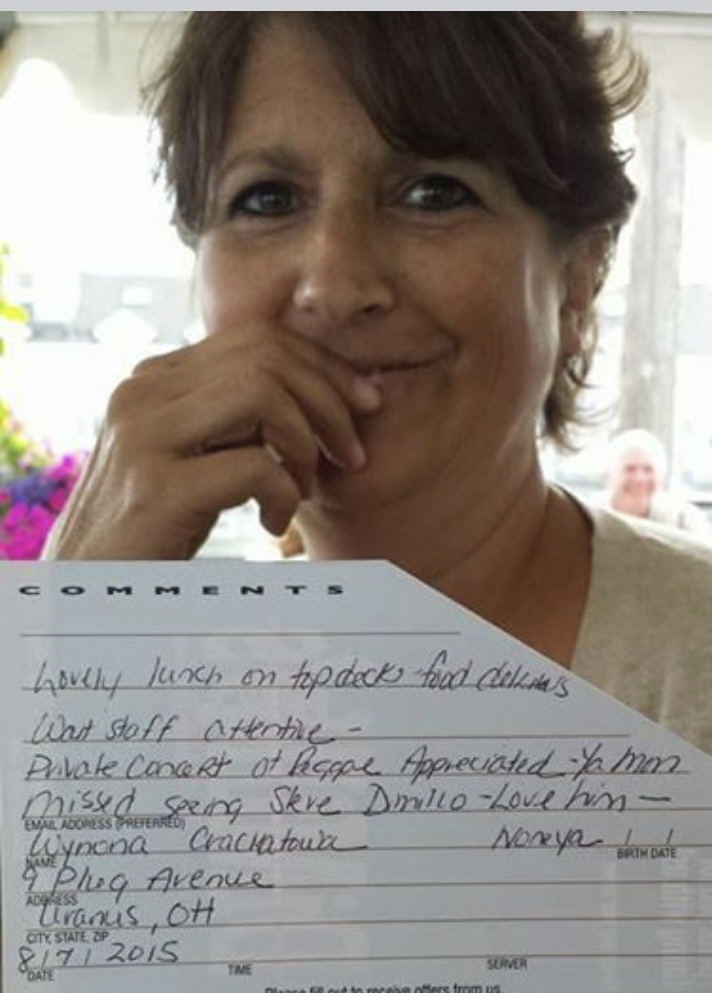 COMMENTS
Lovely lunch on top deck food delicious
Wait staff attentive -
Private Concert of Reggae Appreciated - Ya Mon
missed seeing Steve Dimillo - Love him -
EMAIL ADDRESS (PREFERRED)
Wynona Crackatowa Noneya / /
NAME BIRTH DATE
9 Plug Avenue
ADDRESS
Uranus, OH
CITY, STATE, ZIP
8/7/2015
DATE TIME SERVER
Please fill out to receive offers from us